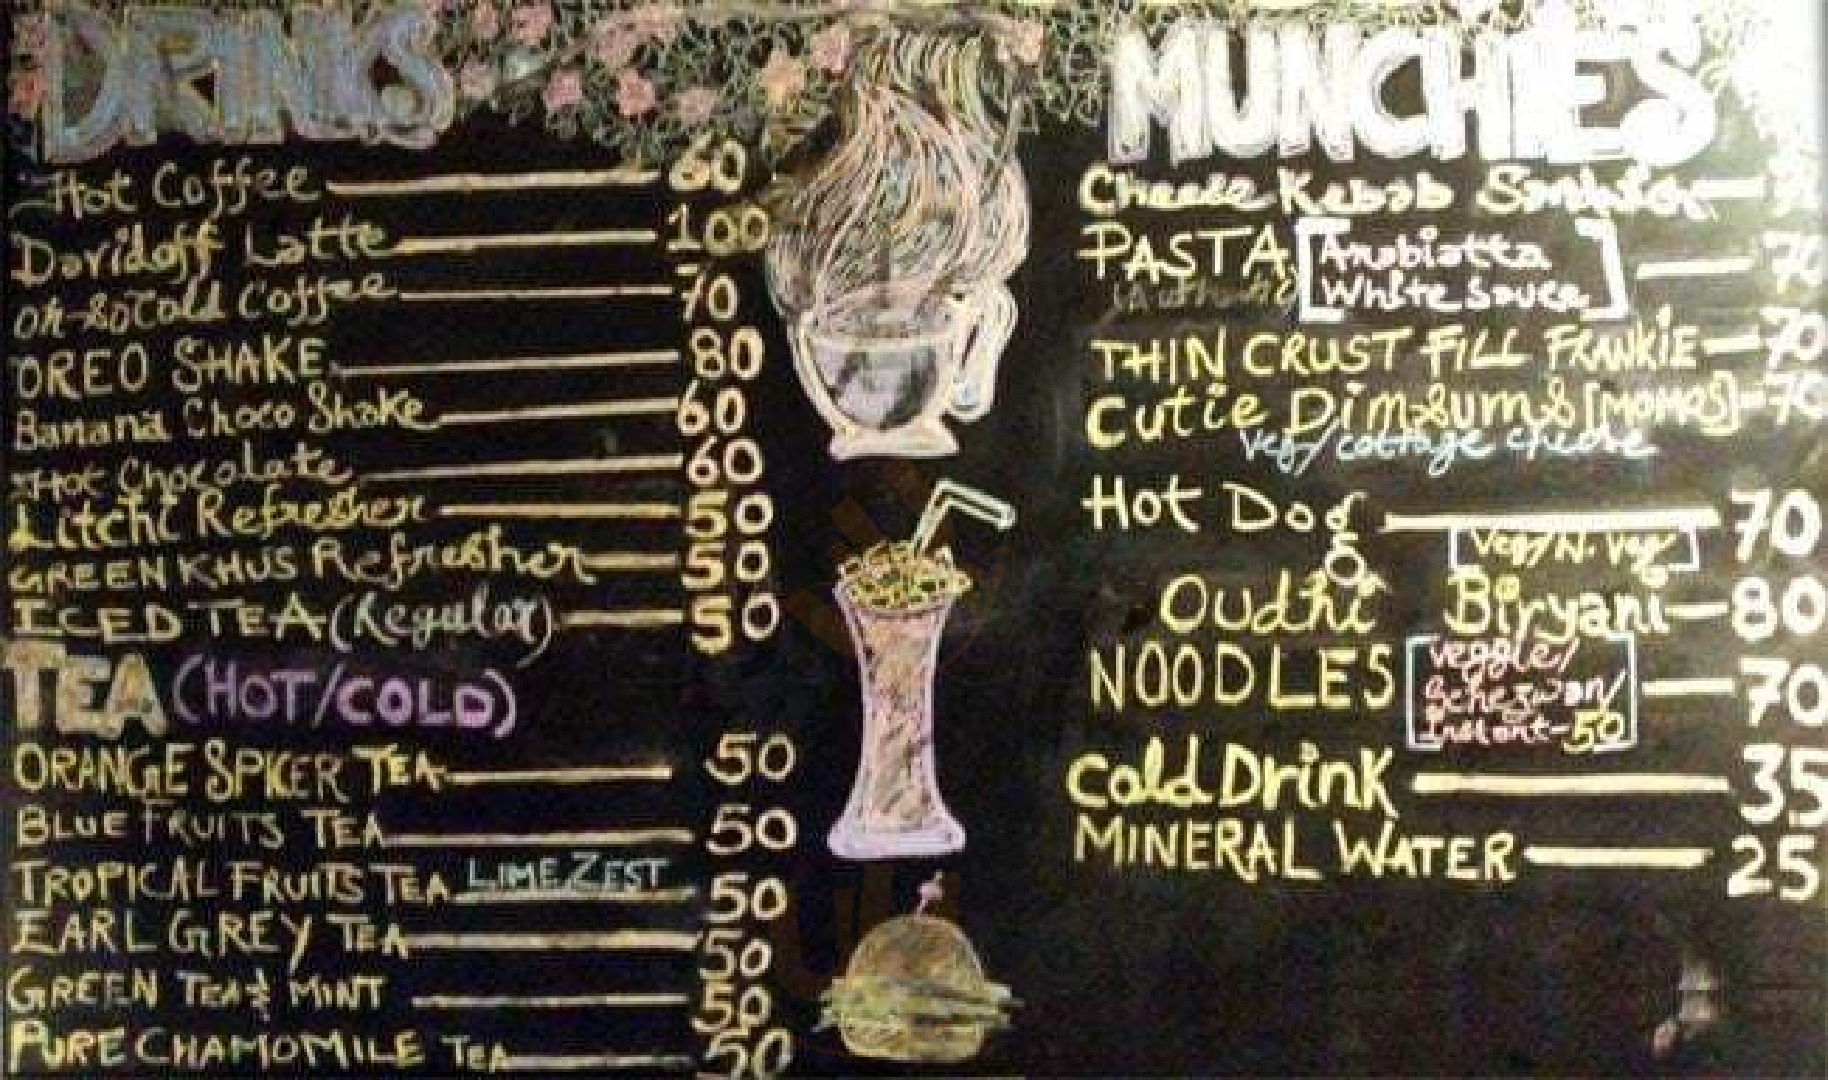 DRINKS
Hot Coffee 60
Davidoff Latte 100
Oh-So Cold Coffee 70
OREO SHAKE 80
Banana Choco Shake 60
Hot Chocolate 60
Litchi Refresher 50
GREEN KHUS Refresher 50
ICED TEA (Regular) 50
TEA (HOT/COLD)
ORANGE SPICER TEA 50
BLUE FRUITS TEA 50
TROPICAL FRUITS TEA LIME ZEST 50
EARL GREY TEA 50
GREEN TEA & MINT 50
PURE CHAMOMILE TEA 50
MUNCHIES
Cheese Kebab
PASTA [Arabiatta 70
White Sauce]
THIN CRUST FILL FRANKIE 70
Cutie Dimsums [MOMOS] 70
Veg/cottage cheese
Hot Dog 70
[Veg/N.Veg]
Oudhi Biryani 80
NOODLES [Veggie/ 70
Schezwan/
Instant-50]
Cold Drink 35
MINERAL WATER 25